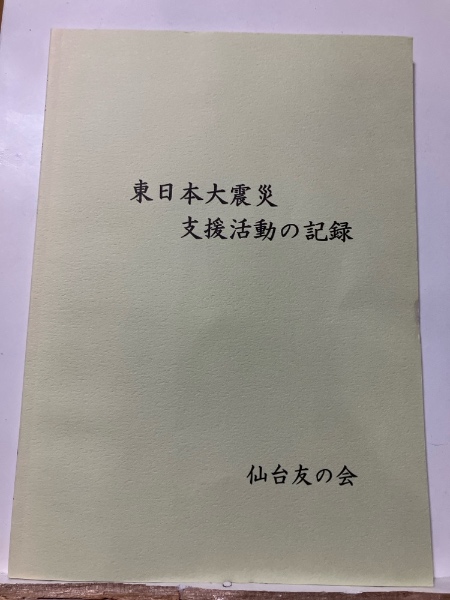 東日本大震災
支援活動の記録
仙台友の会